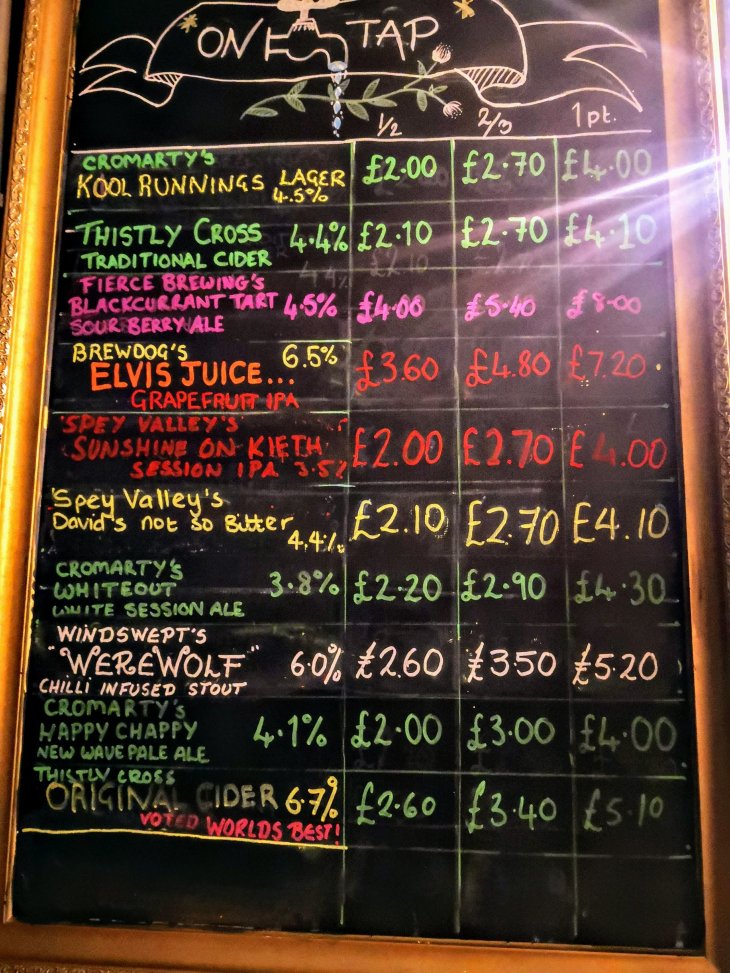 ON TAP
1/2 2/3 1pt.
CROMARTY'S
KOOL RUNNINGS LAGER
4.5%
£2.00 £2.70 £4.00
THISTLY CROSS 4.4%
TRADITIONAL CIDER
£2.10 £2.70 £4.10
FIERCE BREWING'S
BLACKCURRANT TART 4.5%
SOUR BERRY ALE
£4.00 £5.40 £8.00
BREWDOG'S 6.5%
ELVIS JUICE...
GRAPEFRUIT IPA
£3.60 £4.80 £7.20
SPEY VALLEY'S
SUNSHINE ON KIETH
SESSION IPA 3.5%
£2.00 £2.70 £4.00
Spey Valley's
David's not so Bitter
4.4%
£2.10 £2.70 £4.10
CROMARTY'S
WHITEOUT 3.8%
WHITE SESSION ALE
£2.20 £2.90 £4.30
WINDSWEPT'S
"WEREWOLF" 6.0%
CHILLI INFUSED STOUT
£2.60 £3.50 £5.20
CROMARTY'S
HAPPY CHAPPY 4.1%
NEW WAVE PALE ALE
£2.00 £3.00 £4.00
THISTLY CROSS
ORIGINAL CIDER 6.7%
VOTED WORLDS BEST!
£2.60 £3.40 £5.10